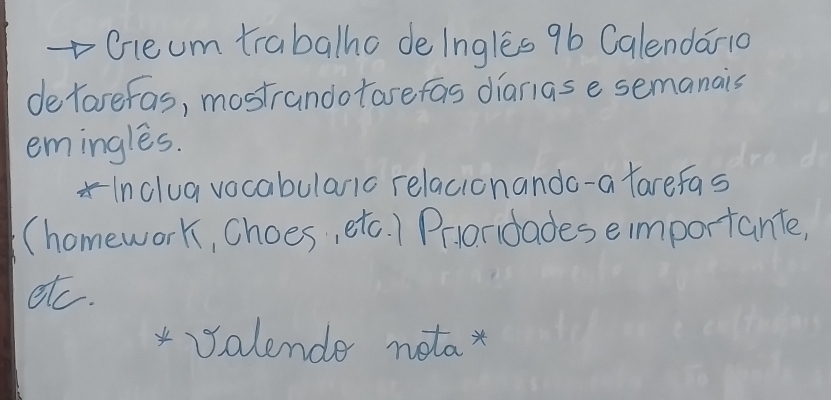 → Crie um trabalho de Inglês 9b Calendário
de tarefas, mostrando tarefas diárias e semanais
em inglês.
* Inclua vocabulario relacionando-a tarefas
(homework, Choes, etc.) Prioridades e importante,
etc.
* Valendo nota *